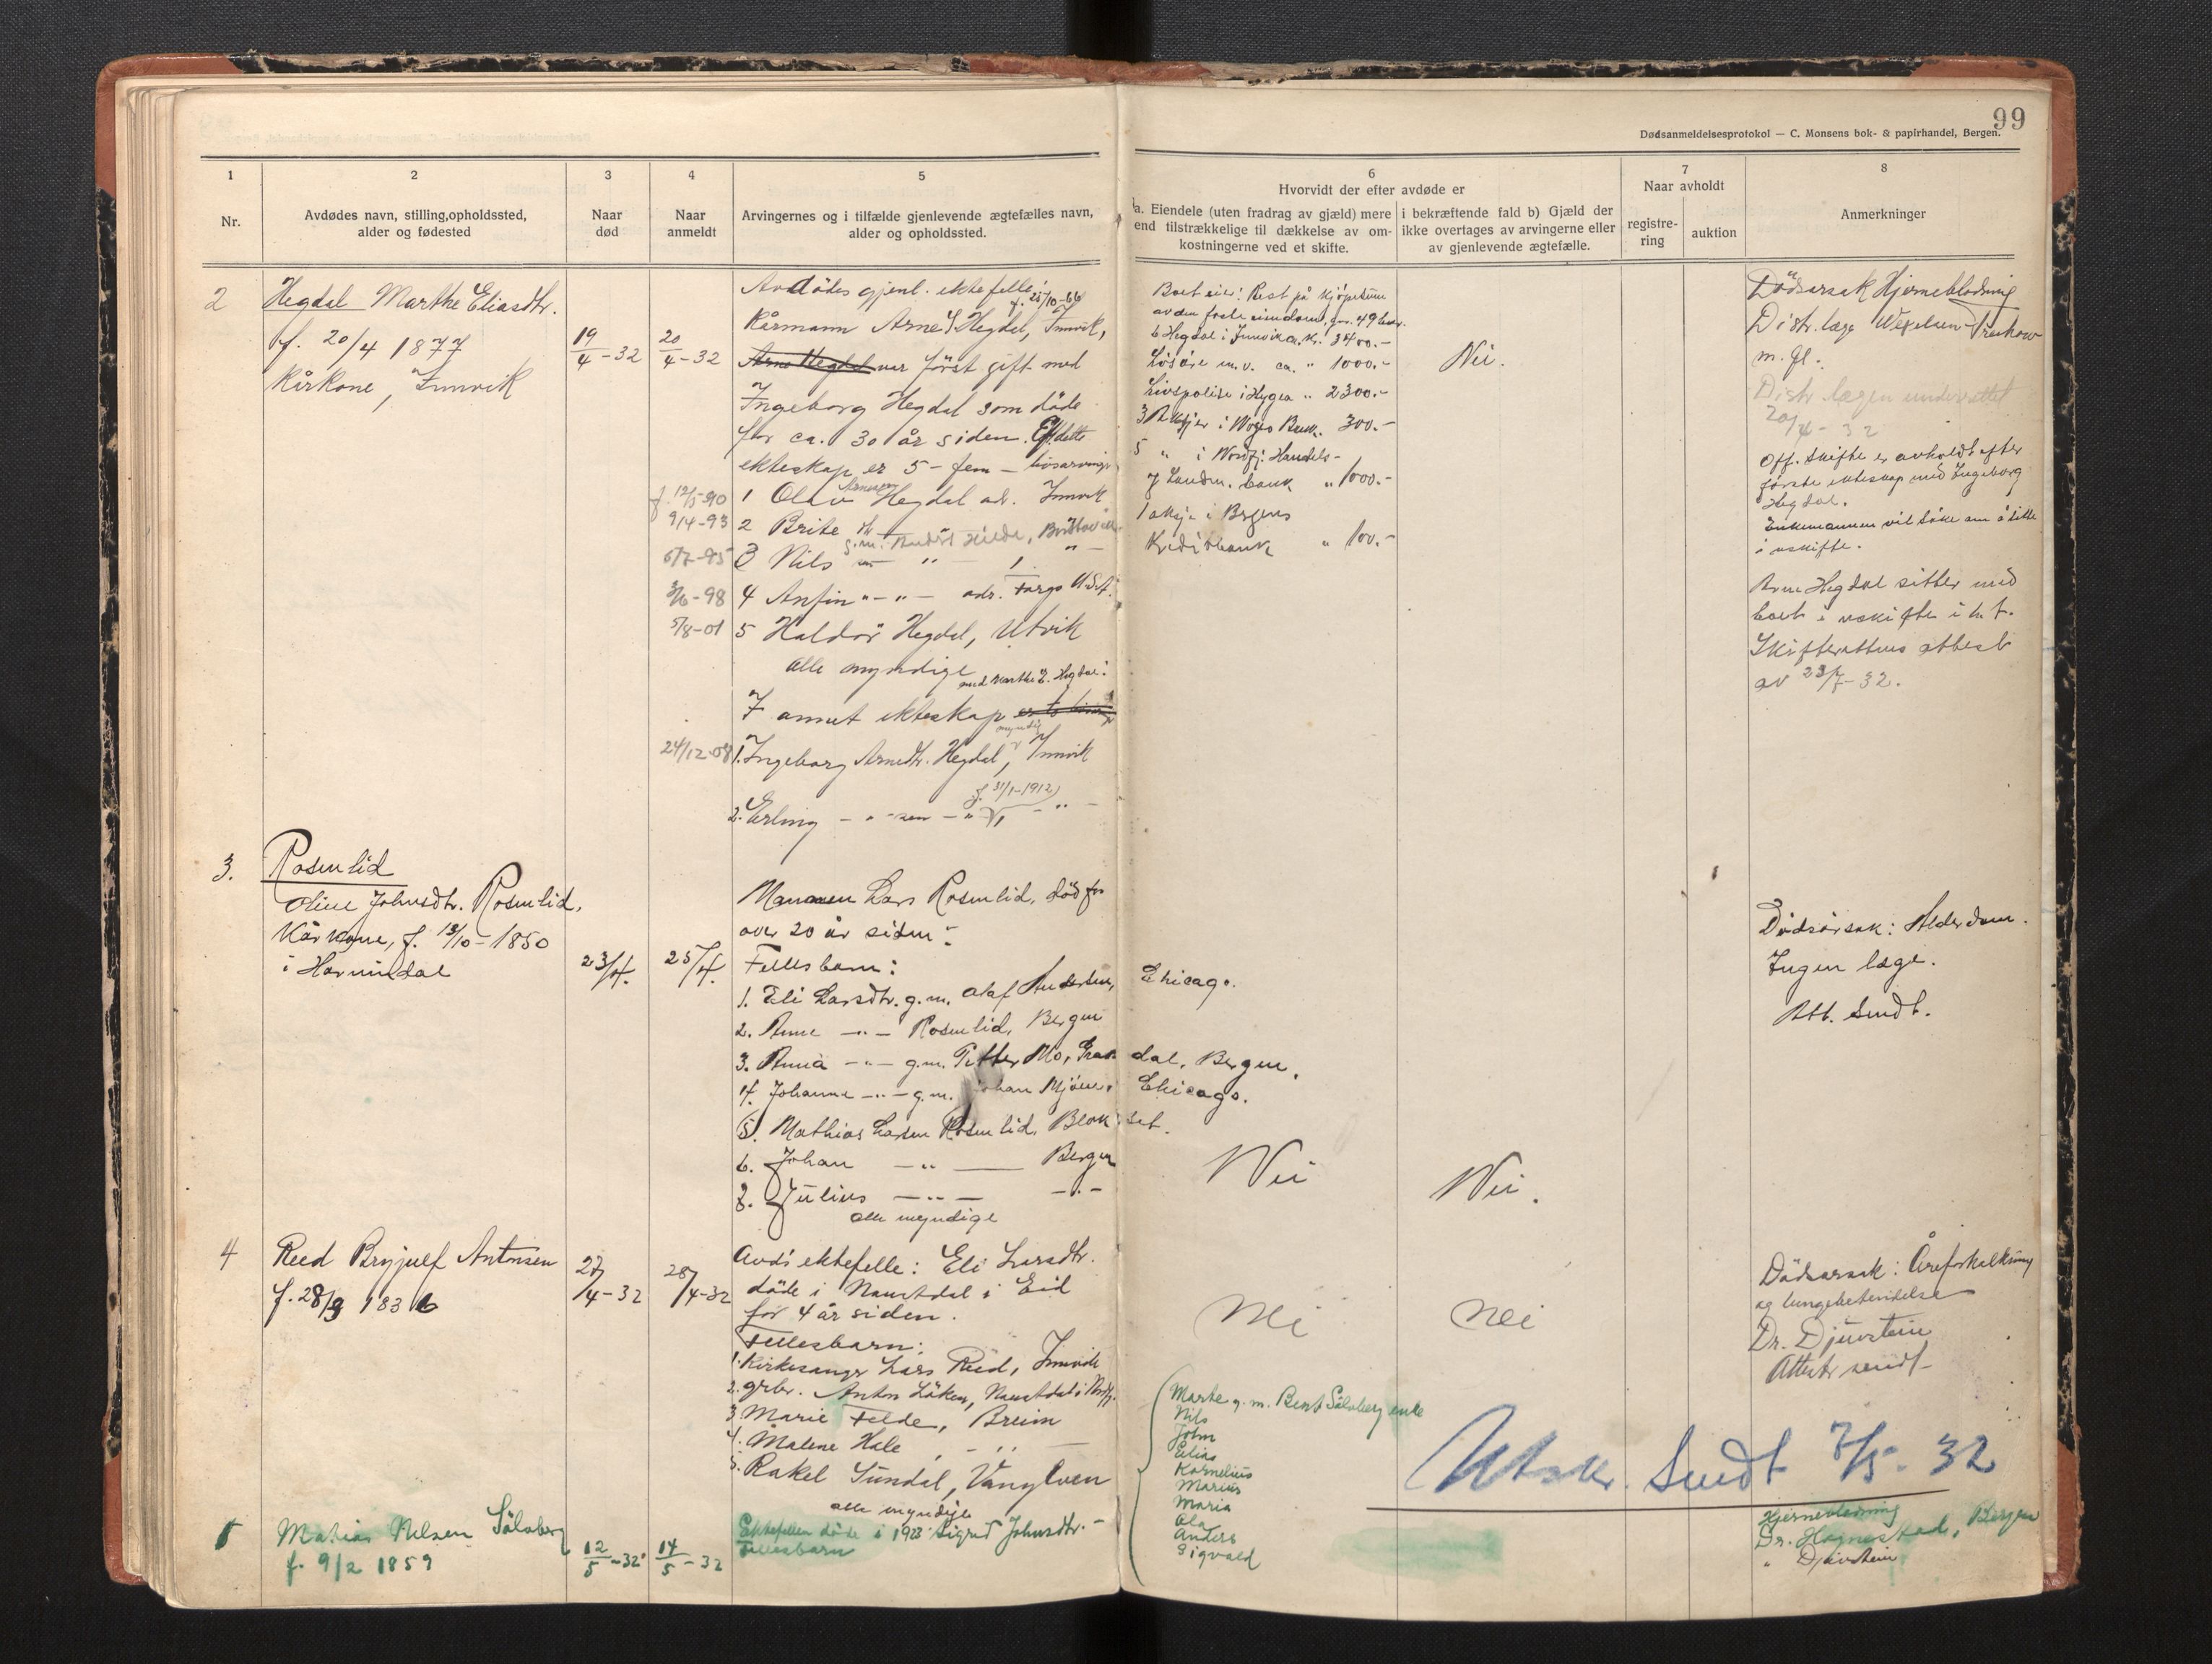 99
Dødsanmeldelsesprotokol — C. Monsens bok- & papirhandel, Bergen.
1
Nr.
2
Avdødes navn, stilling, opholdssted,
alder og fødested
3
Naar
død
4
Naar
anmeldt
5
Arvingernes og i tilfælde gjenlevende ægtefælles navn,
alder og opholdssted.
6
Hvorvidt der efter avdøde er
a. Eiendele (uten fradrag av gjæld) mere
end tilstrækkelige til dækkelse av om-
kostningerne ved et skifte.
i bekræftende fald b) Gjæld der
ikke overtages av arvingerne eller
av gjenlevende ægtefælle.
7
Naar avholdt
registre-
ring
auktion
8
Anmerkninger
2
Hegdal Marthe Eliasdtr.
f. 20/4 1877
Kårkone, Innvik
19/4-32
20/4-32
Avdödes gjenl. ektefelle:
f. 25/10-66
Kårmann Arne Hegdal, Innvik,
Arne Hegdal var först gift med
Ingeborg Hegdal som döde
for ca. 30 år siden. Efter dette
ekteskap er 5 - fem - livsarvinger
f. 12/5-90 1 Olav Arnesen Hegdal adr. Innvik
9/4-93 2 Brite
g.m. Anders Hilde,
6/7-95 3 Nils " "
3/6-98 4 Anfin " - " - adr. Fargo U.S.A.
5/8-01 5 Haldor Hegdal, Utvik
alle myndige
med Marthe E. Hegdal:
I annet ekteskap
myndig
24/12-08 1. Ingeborg Arnedtr. Hegdal, Innvik
f. 31/1-1912
2. Erling - " - sen - " - " -
Boet eier: Rest på kjöpesum
av den faste eiendom, gnr. 49 bnr.
6 Hegdal i Innvik ca. kr. 3400.-
Lösöre m.v. ca. " 1000.-
Livspolise i Hygea " 2300.-
3 Aksjer i Bank. 300.-
5 " i Nordfj. Handels-
og Landm. bank " 1000.-
1 aksje i Bergens
Kreditbank " 100.-
Nei.
Dödsårsak Hjerneblödning
Distr. læge Wexelsen
m. fl.
Distr. lægen underrettet
20/4-32
Off. skifte er avholdt efter
förste ekteskap med Ingeborg
Hegdal.
Enkemannen vil söke om å sitte
i uskifte.
Arne Hegdal sitter med
boet i uskifte i h.t.
Skifterettens attest
av 23/7-32.
3.
Rosenlid
Oline Johnsdtr. Rosenlid,
Kårkone, f. 13/10-1850
i Hornindal
23/4.
25/4.
Mannen Lars Rosenlid, död for
over 20 år siden.
Fellesbarn:
1. Eli Larsdtr. g.m. Olaf Andersen, Chicago.
2. Anne - " - Rosenlid, Bergen
3. Anna - " - g.m. Petter Mo, dal, Bergen.
4. Johanne - " - g.m. Johan Mjöen, Chicago.
5. Mathias Larsen Rosenlid, Blakset.
6. Johan - " - Bergen
7. Julius - " - - " -
alle myndige
Nei
Nei.
Dödsårsak: Alderdom.
Ingen læge.
Att. sendt.
4
Reed Brynjulf Antonsen
f. 28/9 1836
27/4-32
28/4-32
Avd's ektefelle: Eli Larsdtr.
döde i Naustdal i Eid
for 4 år siden.
Fellesbarn:
1. Kirkesanger Lars Reed, Innvik
2. grbr. Anton Löken, Naustdal i Nordfj.
3. Marie Felde, Breim
4. Malene Hole, - " -
5. Rakel Sundal, Vangtven
alle myndige
Nei
Nei
Dödsarsak: Åreforkalkning
og lungebetendelse
Dr. Djuvstein
Attest sendt
Utskr. Sendt 7/5-32
5
Matias Nilsen Sölvberg
f. 9/2 1859
12/5-32
14/5-32
Ektefellen döde i 1923 Sigrid Johnsdtr. -
Fellesbarn
Marte g.m. Bent Sölvberg enke
Nils
John
Elias
Kornelius
Marius
Maria
Ola
Anders
Sigvald
Hjerneblödning
Dr. Hognestad, Bergen
" Djuvstein